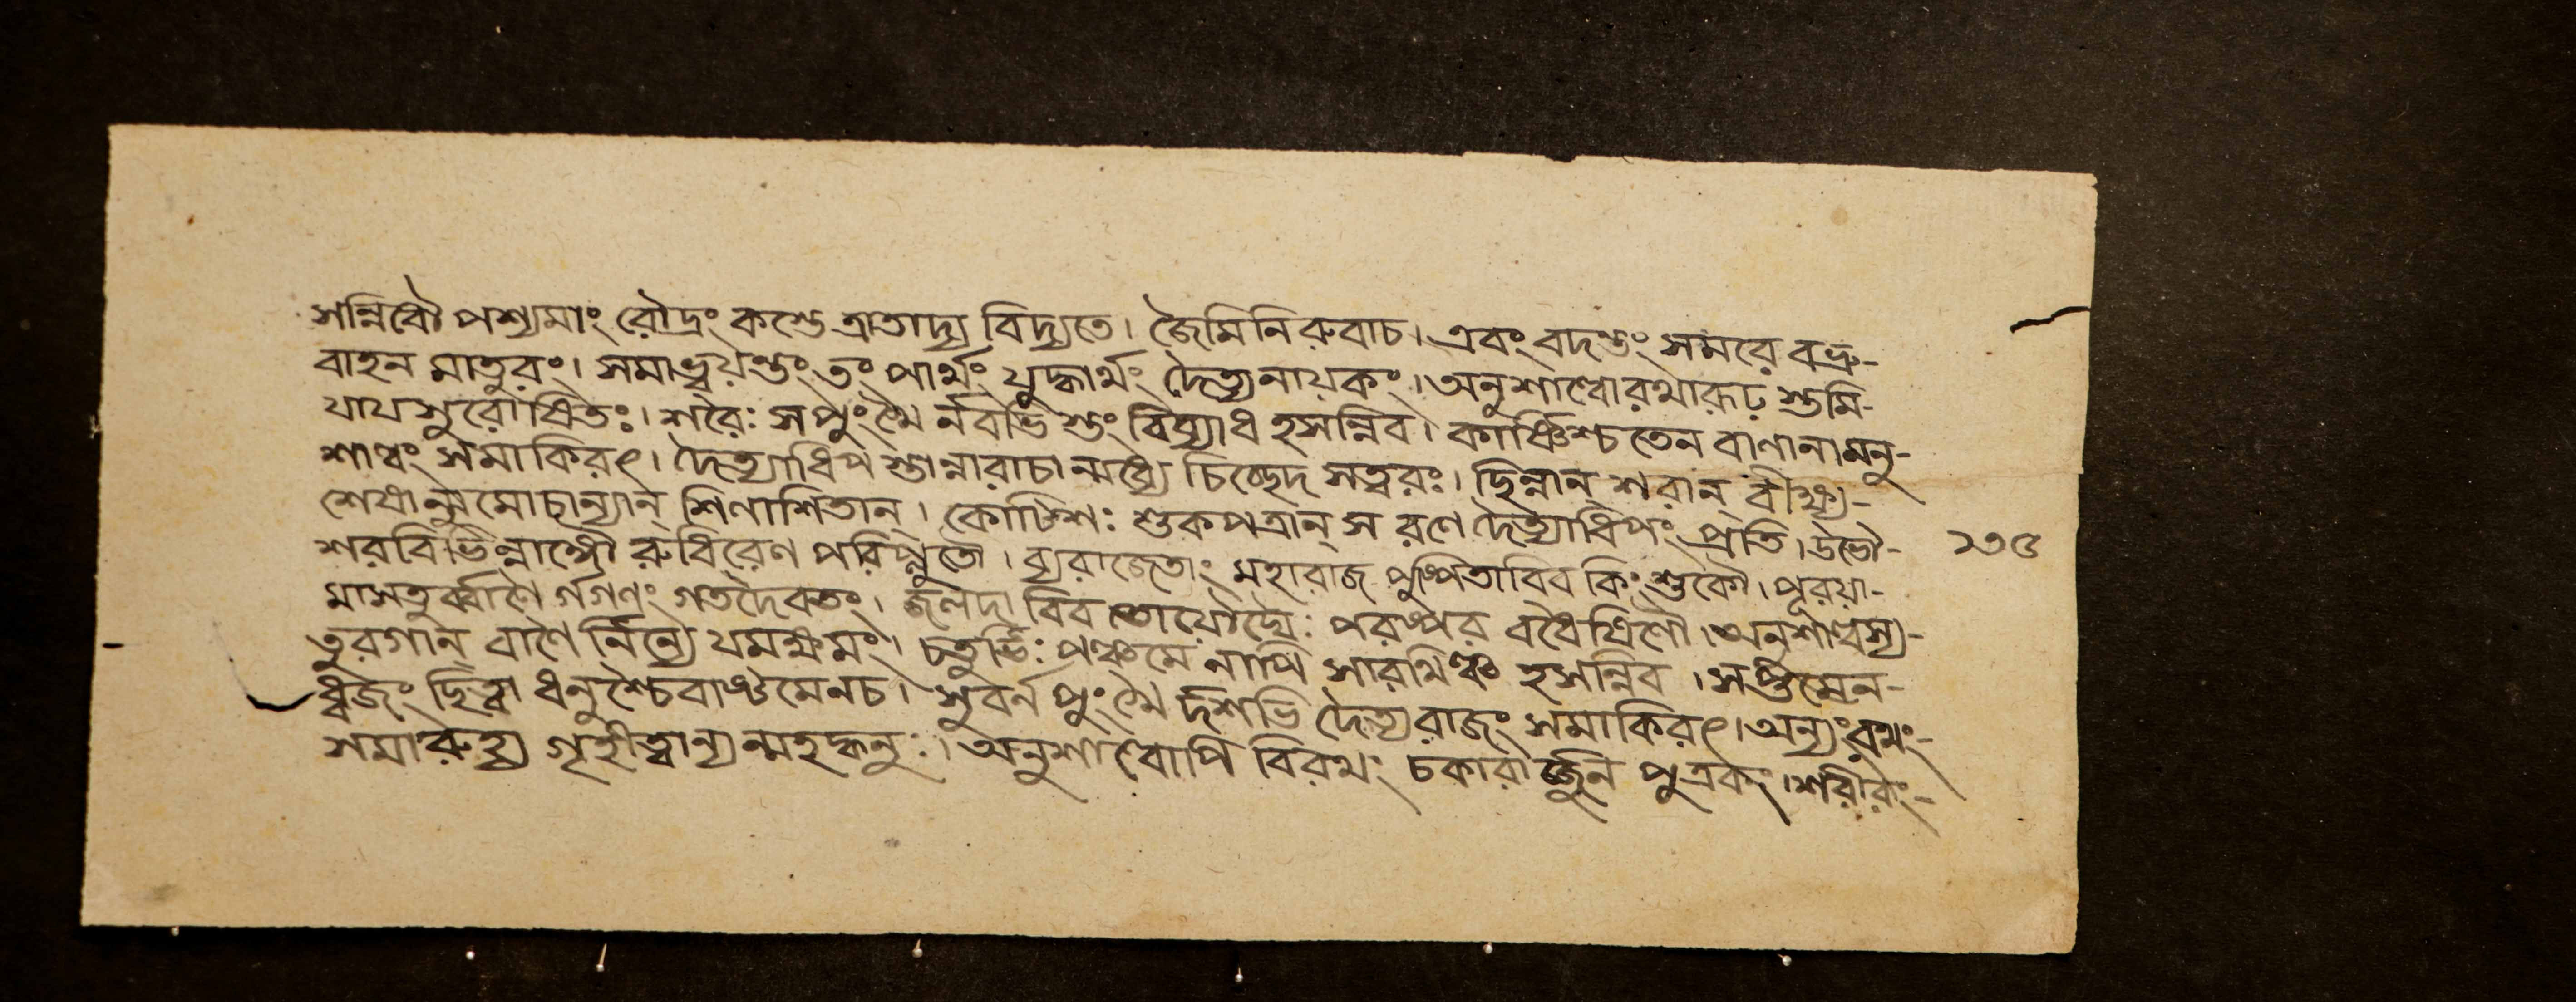 সন্নিধৌ পশ্যমাং রৌদ্রং কস্তে ত্রাতাদ্য বিদ্যতে। জৈমিনিরুবাচ। এবং বদন্তং সমরে বভ্রু-
বাহন মাতুরং। সমাহ্বয়ন্তং তং পার্থং যুদ্ধার্থং দৈত্যনায়কং। অনুশাল্বোরথারূঢ় স্তমি-
যাযসুরোষিতঃ। শরৈঃ সপুংখৈ র্নবভি স্তং বিব্যাধ হসন্নিব। কাংশ্চিশ্চতেন বাণানামনু-
শাল্বং সমাকিরৎ। দৈত্যাধিপ স্তান্নারাচান্মধ্যে চিচ্ছেদ সত্বরঃ। ছিন্নান্ শরান্ বীক্ষ্য-
শেষান্মুমোচান্যান্ শিলাশিতান্। কোটিশঃ শুকপত্রান্ স রণে দৈত্যাধিপং প্রতি। উভৌ-
শরবিভিন্নাঙ্গৌ রুধিরেণ পরিপ্লুতৌ। ব্যরাজেতাং মহারাজ পুষ্পিতাবিব কিংশুকৌ। পূরয়া-
২৩৫
মাসতুর্ব্বাণৈ র্গগণং গতদৈবতং। জলদা বিব তোযৌঘৈঃ পরস্পর বধৈষিণৌ। অনুশাল্বস্য-
তুরগান্ বাণৈ র্নিন্যে যমক্ষমং। চতুর্ভিঃ পঞ্চমে নাপি সারথিঞ্চ হসন্নিব। সপ্তমেন-
ধ্বজং ছিত্বা ধনুশ্চৈবাষ্টমেনচ। সুবর্ন পুংখৈ র্দশভি দৈত্যরাজং সমাকিরৎ। অন্যং রথং-
সমারুহ্য গৃহীত্বান্যন্মহদ্ধনুঃ। অনুশাল্বোপি বিরথং চকারার্জ্জুন পুত্রকং। শরীরং-